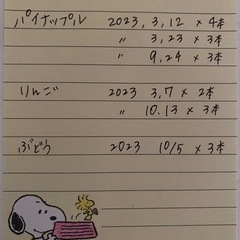 パイナップル 2023, 3, 12 × 4本
〃 3, 23 × 3本
〃 9, 24 × 3本
りんご 2023 3, 7 × 2本
〃 10, 13 × 3本
ぶどう 2023 10/5 × 3本